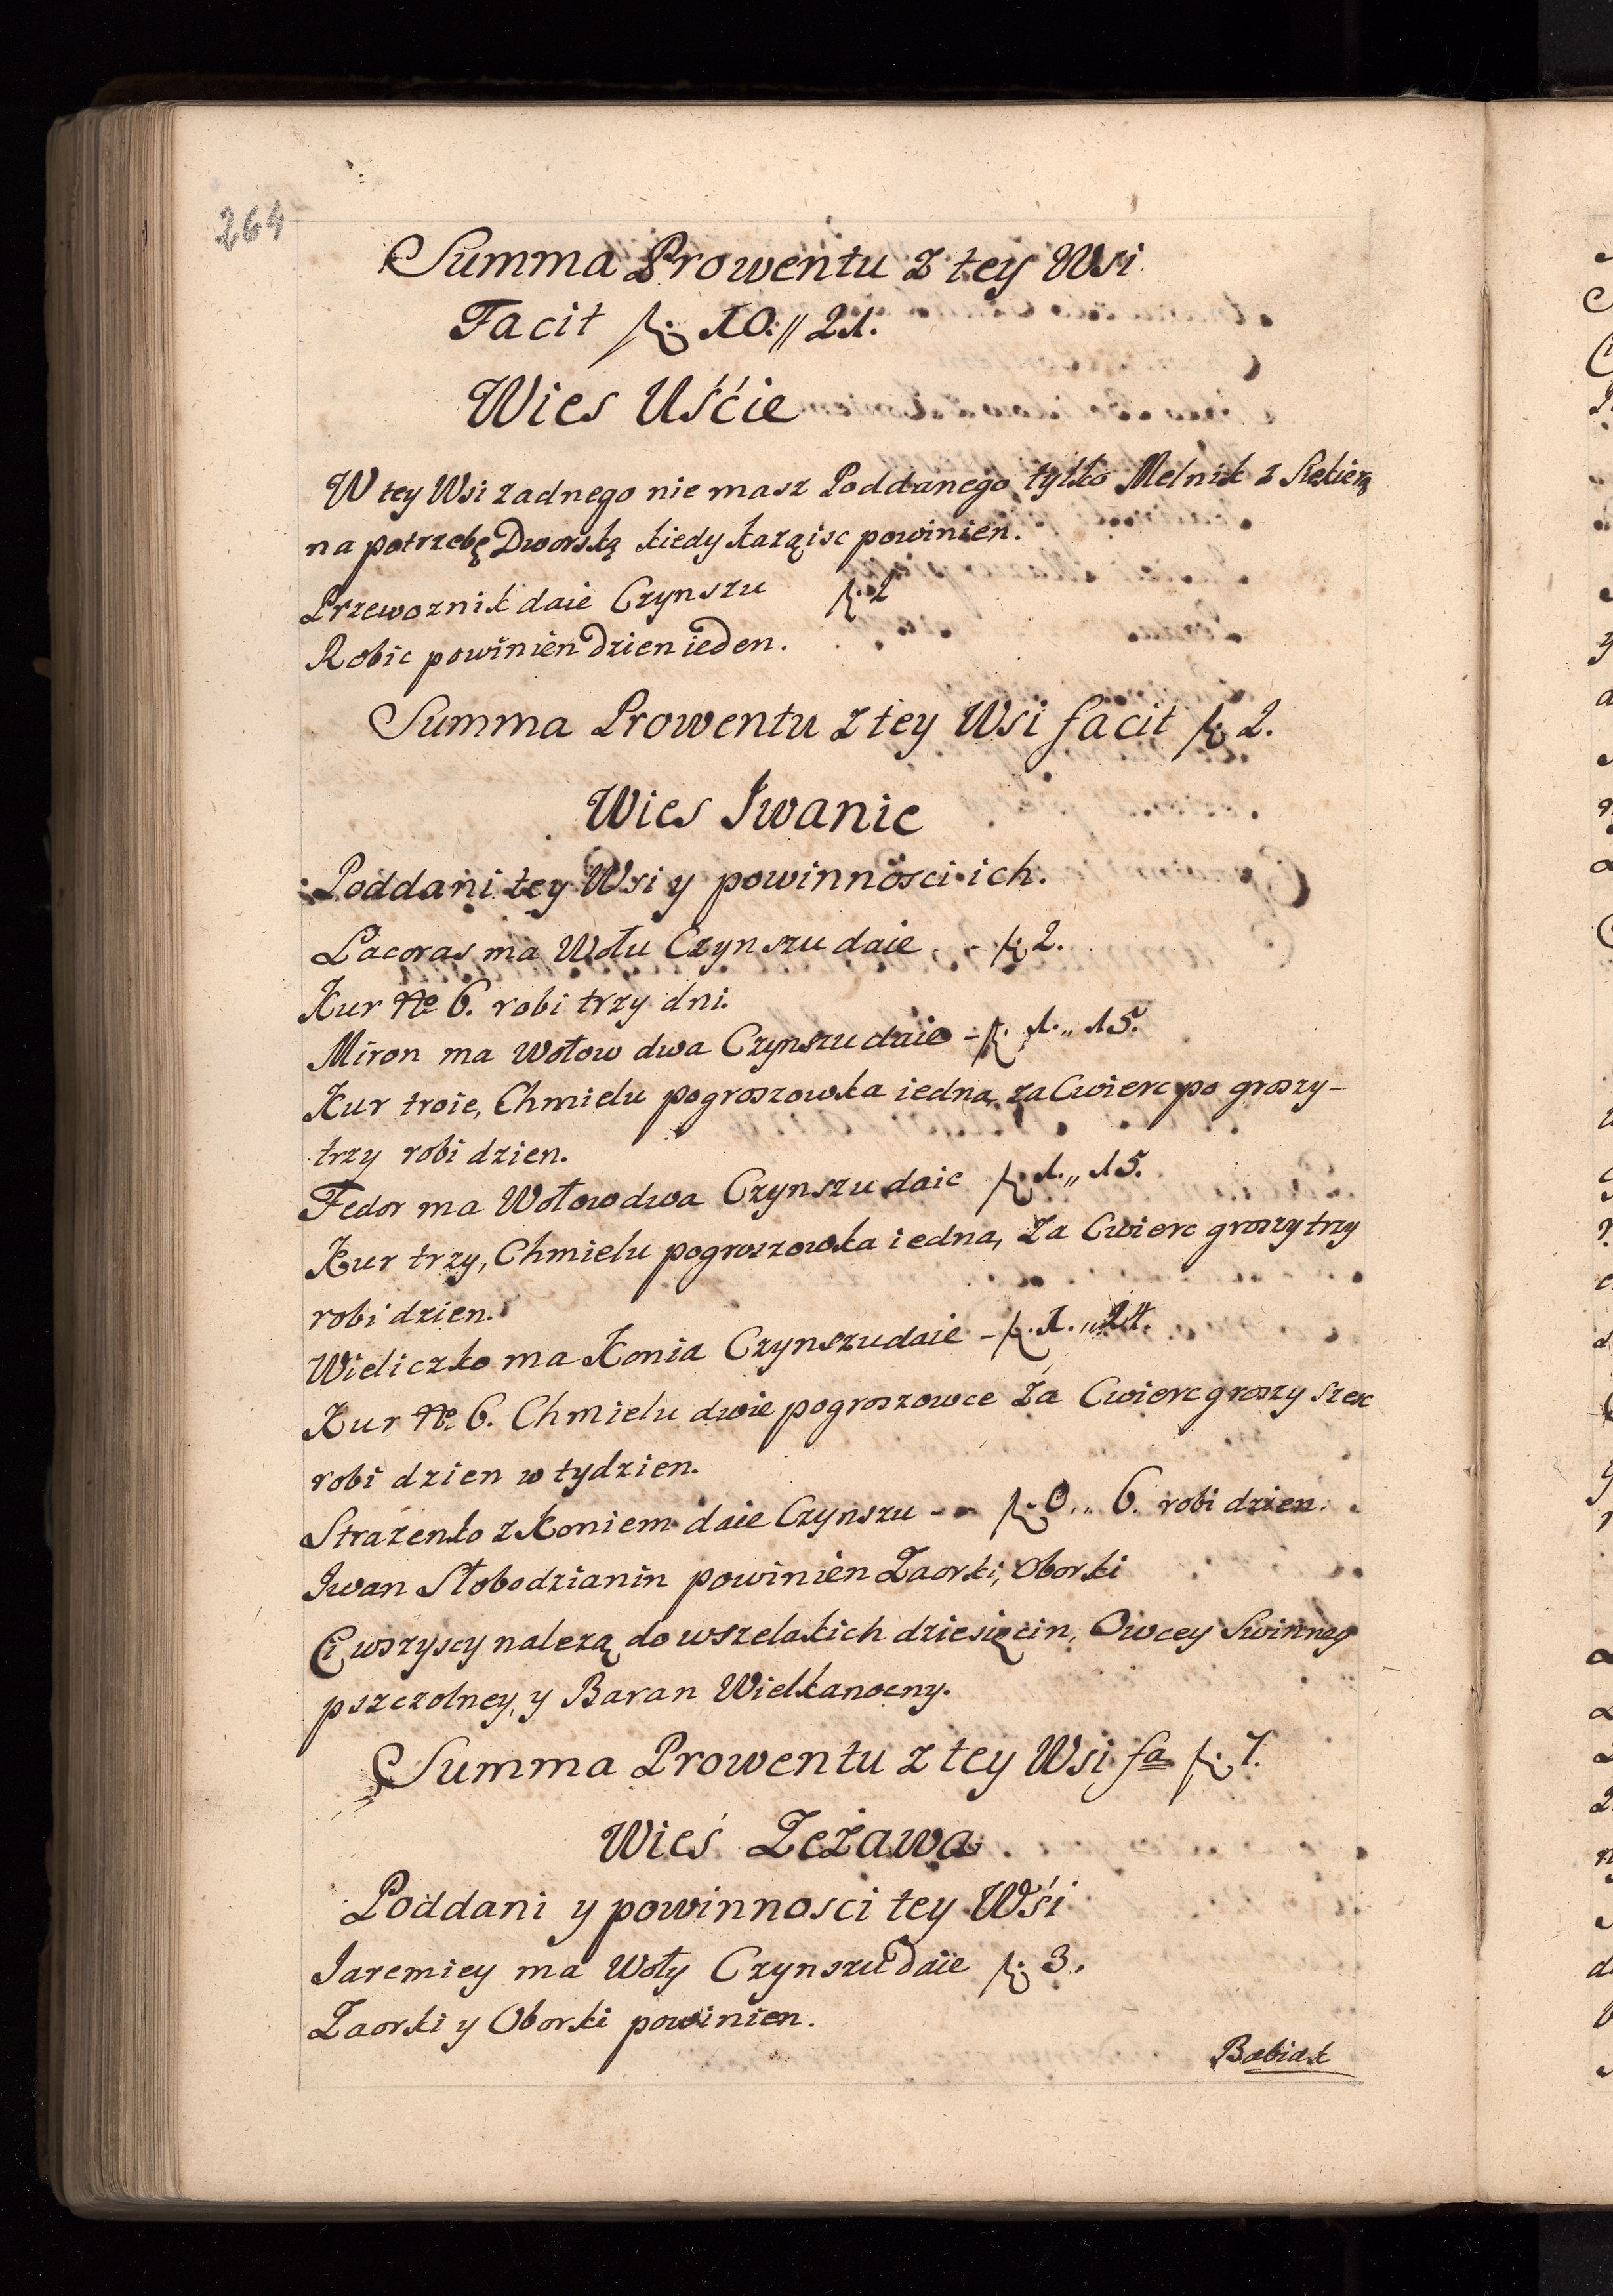 264
Summa Prowentu z tey Wsi
Facit f. 10.,, 21.
Wies Uśćie
W tey Wsi zadnego nie masz Poddanego tylko Melnik z Siekierą
na potrzebę Dworską kiedy kazą isc powinien.
Przewoznik daie Czynszu f. 2
Robic powinien dzien ieden.
Summa Prowentu z tey Wsi facit f. 2.
Wies Iwanie
Poddani tey Wsi y powinnosci ich.
Pacoras ma Wołu Czynszu daie - f. 2.
Kur No 6. robi trzy dni.
Miron ma Wołow dwa Czynszu daie - f. 1.,, 15.
Kur troie, Chmielu pogroszowka iedna, za Cwierc po groszy-
trzy robi dzien.
Fedor ma Wołow dwa Czynszu daie f. 1.,, 15.
Kur trzy, Chmielu pogroszowka iedna, Za Cwierc groszy trzy
robi dzien.
Wieliczko ma Konia Czynszu daie - f. 1.,, 24.
Kur No 6. Chmielu dwie pogroszowce Za Cwierc groszy szesc
robi dzien w tydzien.
Strazenko z Koniem daie Czynszu - - f. 0.,, 6. robi dzien.
Iwan Słobodzianin powinien Zaorki, Oborki
Ci wszyscy nalezą do wszelakich dziesięcin, Owcey Swinney
pszczolney, y Baran Wielkanocny.
Summa Prowentu z tey Wsi fa f. 7.
Wieś Zeżawa
Poddani y powinnosci tey Wśi
Jaremiey ma Woły Czynszu daie f. 3.
Zaorki y Oborki powinien.
Babiak